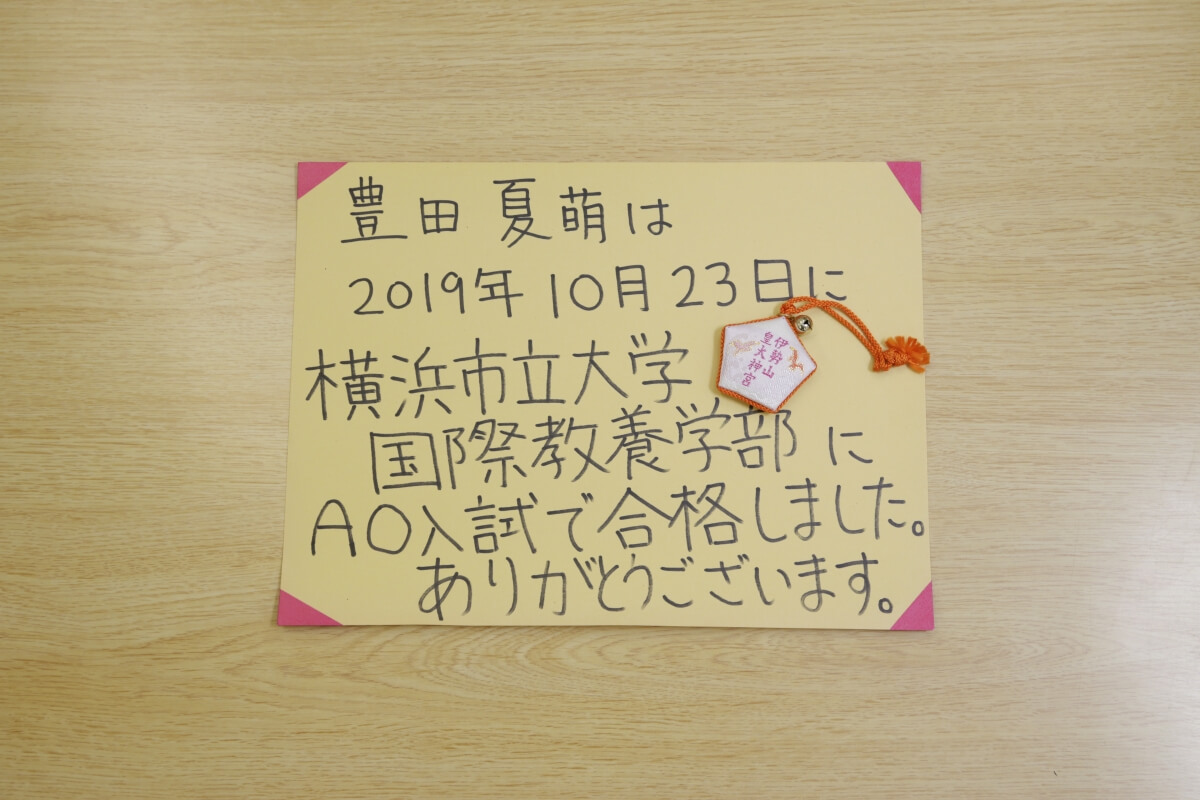 豊田 夏萌は
2019年 10月 23日に
横浜市立大学
国際教養学部 に
AO入試で合格しました。
ありがとうございます。
伊勢山
皇大神宮